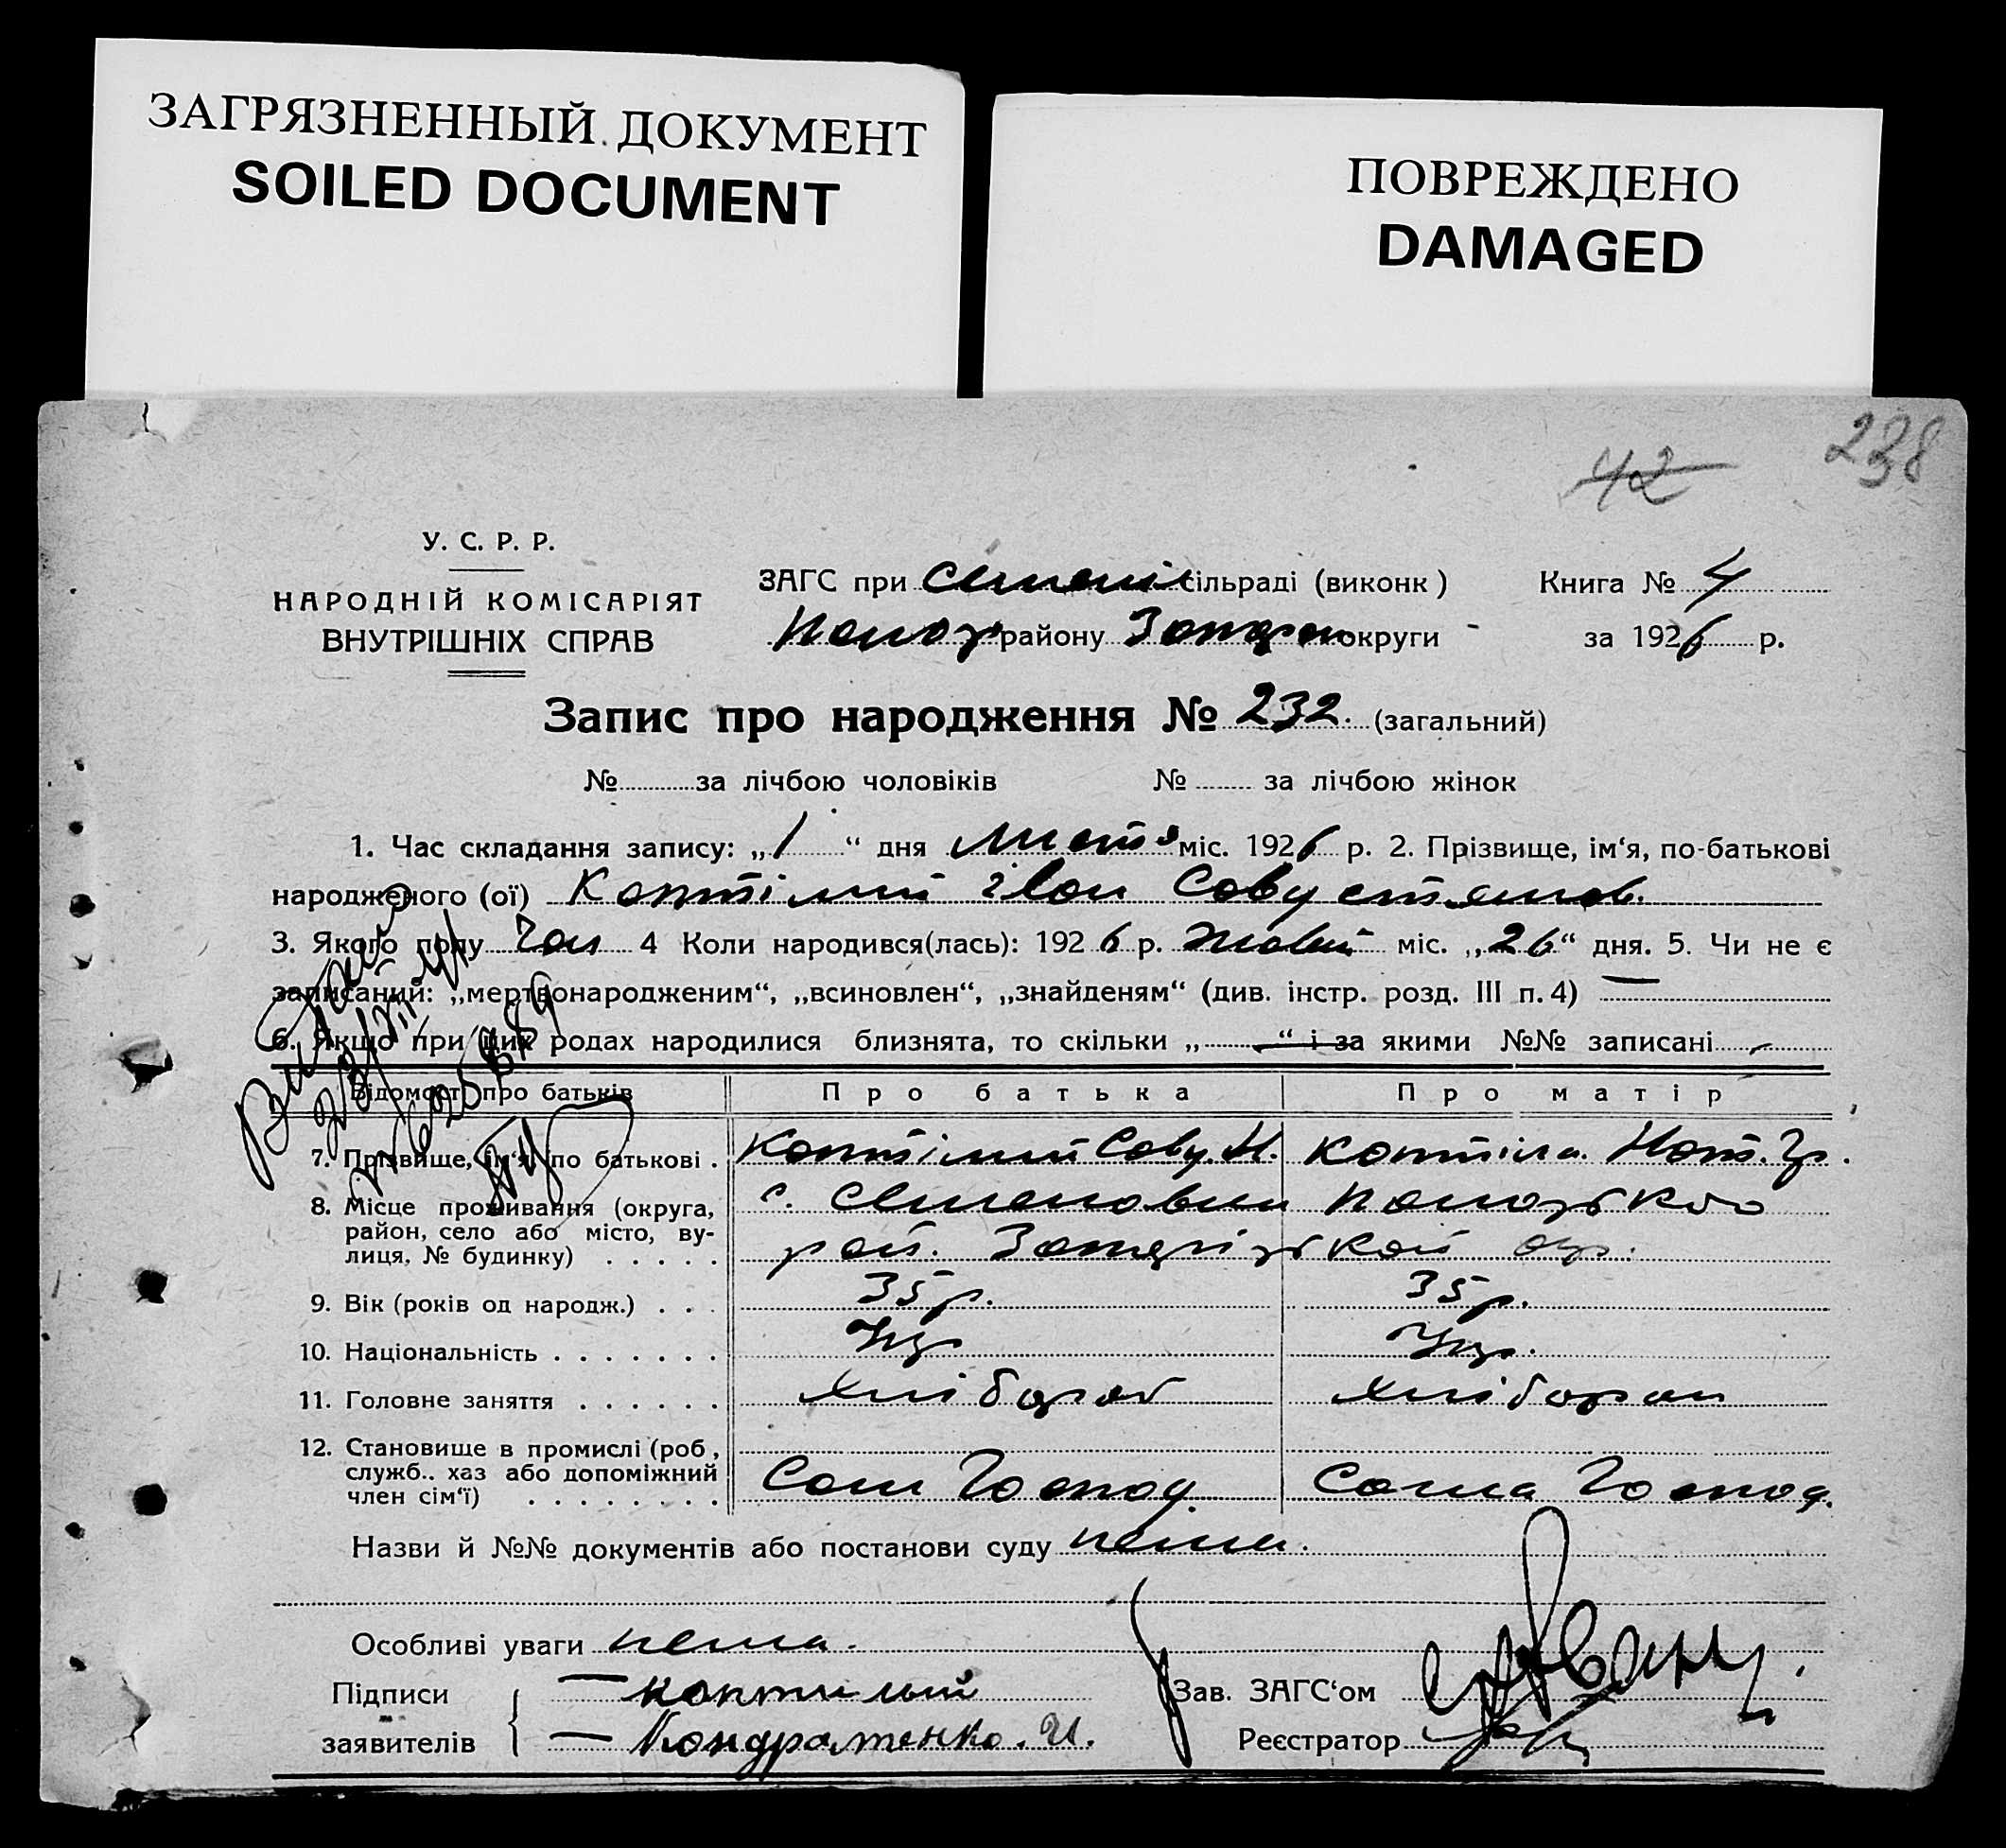 ЗАГРЯЗНЕННЫЙ ДОКУМЕНТ
SOILED DOCUMENT
ПОВРЕЖДЕНО
DAMAGED
238
42
У. С. Р. Р.
НАРОДНІЙ КОМІСАРІЯТ
ВНУТРІШНІХ СПРАВ
ЗАГС при сільраді (виконк) Книга № 4
району округи за 1926 р.
Запис про народження № 232. (загальний)
№ за лічбою чоловіків № за лічбою жінок
1. Час складання запису: „1“ дня міс. 1926 р. 2. Прізвище, ім‘я, по-батькові
народженого (ої) Коптілий
3. Якого полу Чол 4 Коли народився(лась): 1926 р. Жовт міс. „26“ дня. 5. Чи не є
записаний: „мертвонародженим“, „всиновлен“, „знайденям“ (див. інстр. розд. III п. 4) —
6. Якщо при цих родах народилися близнята, то скільки „—“ і за якими №№ записані —
Відомості про батьків Про батька Про матір
7. Прізвище, ім‘я, по батькові . Коптілий Сову. М. Коптіла. Нат. Гр.
8. Місце проживання (округа, с. Семеновки
район, село або місто, ву- рай. Запорізької окр.
лиця, № будинку) . . . . .
9. Вік (років од народж.) . . . 35 р. 35 р.
10. Національність . . . . . . . Укр Укр.
11. Головне заняття . . . . . . Хлібороб
12. Становище в промислі (роб,
служб.. хаз або допоміжний Сам Господ. Сама Господ.
член сім‘ї) . . . . . . . .
Назви й №№ документів або постанови суду нема.
Особливі уваги нема.
Підписи — коптилий Зав. ЗАГС‘ом
заявителів — Кондратенко. И. Реєстратор